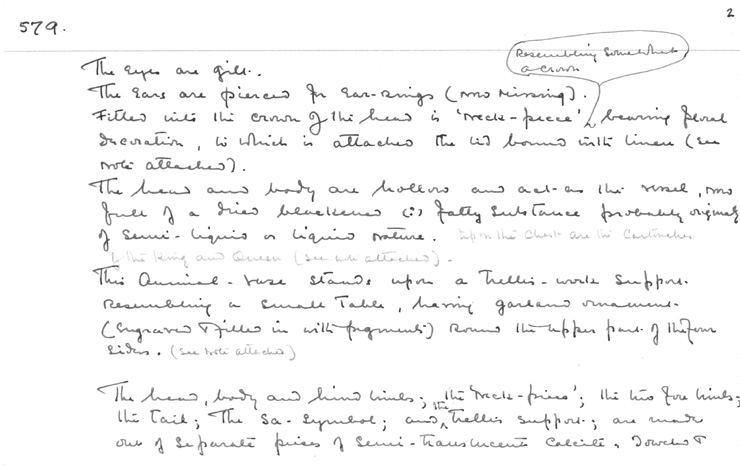 2
579.
Resembling somewhat
a crown
The Eyes are gilt.
The Ears are pierced for Ear-rings (now missing).
Fitted into the crown of the head is 'neck-piece' ^ bearing floral
decoration, to which is attached the lid bound with linen (see
note attached).
The head and body are hollow and act as the vessel, now
full of a dried blackened (?) fatty substance probably originally
of semi-liquid or liquid nature. Upon the chest are the Cartouches
of the King and Queen (see note attached).
This Animal-vase stands upon a trellis-work support
resembling a small Table, having garland ornament
(engraved & filled in with pigments) round the upper part of the four
sides. (see note attached)
The head, body and hind limbs; the 'neck-piece'; the two fore limbs;
the tail; The Sa-symbol; and ^the trellis support; are made
out of separate pieces of semi-translucent Calcite. Dowelled &